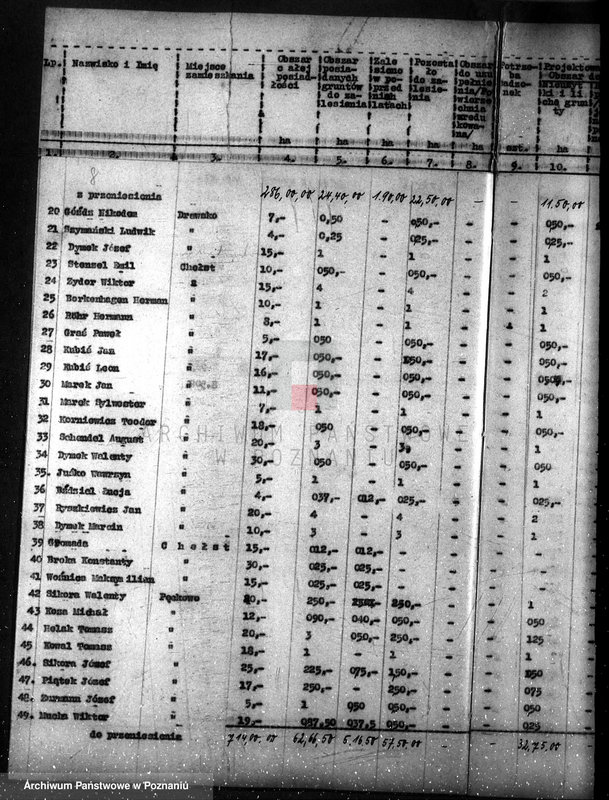 Lp. Nazwisko i Imię Miejsce zamieszkania Obszar całej posiadłości ha Obszar posiadanych gruntów do zalesienia ha Zalesiono w poprzednich latach ha Pozostało do zalesienia ha Obszar
1. 2. 3. 4. 5. 6. 7. 8. 9. 10.
8
z przeniesienia 286,00,00 24,40,00 1.90,00 22,50,00 - - 11,50,00
20 Góźdź Nikodem Drawsko 7,- 0,50 - 050,- - - 050,-
21 Szymański Ludwik " 4,- 0,25 - 025,- - - 025,-
22 Dymek Józef " 15,- 1 - 1 - - 1
23 Stenzel Emil Chełst 10,- 050,- - 050,- - - 050,-
24 Zyder Wiktor " 15,- 4 - 4 - - 2
25 Borkenhagen Herman " 10,- 1 - 1 - - 1
26 Röhr Hermann " 8,- 1 - 1 - - 1
27 Graś Paweł " 5,- 050 - 050,- - - 050,-
28 Kubiś Jan " 17,- 050,- - 050,- - - 050,-
29 Kubiś Leon " 16,- 050,- - 050,- - - 050,-
30 Marek Jan " 11,- 050,- - 050,- - - 050,-
31 Marek Sylwester " 7,- 1 - 1 - - 1
32 Korniewicz Teodor " 18,- 050 - 050,- - - 050,-
33 Schendel August " 20,- 3 - 3, - - 1
34 Dymek Walenty " 30,- 050 - 050,- - - 050
35. Juśko Wawrzyn " 5,- 1 - 1 - - 1
36 Łucja " 4,- 037,- 012,- 025,- - - 025,-
37 Ryszkiewicz Jan " 20,- 4 - 4 - - 2
38 Dymek Marcin " 10,- 3 - 3 - - 1
39 Gromada Chełst 15,- 012,- 012,- - - - -
40 Broka Konstanty " 30,- 025,- 025,- - - - -
41 Woźnica Maksymilian " 15,- 025,- 025,- - - - -
42 Sikora Walenty Pęckowo 20,- 250,- 250,- - - 1
43 Koza Michał " 12,- 090,- 040,- 050,- - - 050
44 Helak Tomasz " 20,- 3 050,- 250,- - - 125
45 Kowal Tomasz " 18,- 1 - 1 - - 1
46. Sikora Józef " 25,- 225,- 075,- 150,- - - 050
47. Piątek Józef " 17,- 250,- - 250,- - - 075
48. Józef " 5,- 1 050 050,- - - 050
49. Mucha Wiktor " 19,- 087,50 037,5 050,- - - 025
do przeniesienia 714,00,00 62,66,50 5.16,50 57,50,00 32,75,00
ARCHIWUM PAŃSTWOWE
W POZNANIU
Archiwum Państwowe w Poznaniu